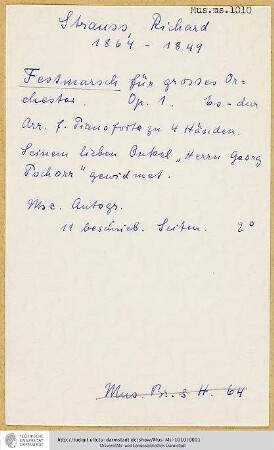 Mus.ms.1010
Strauss, Richard
1864 - 1849
Festmarsch für grosses Or-
chester. Op. 1. Es-dur
Arr. f. Pianoforte zu 4 Händen.
Seinem lieben Onkel „Herrn Georg
Pschorr" gewidmet.
Msc. Autogr.
11 beschrieb. Seiten. 2°
Mus. Br. s H. 64
TECHNISCHE
UNIVERSITÄT
DARMSTADT
Universitäts- und Landesbibliothek Darmstadt